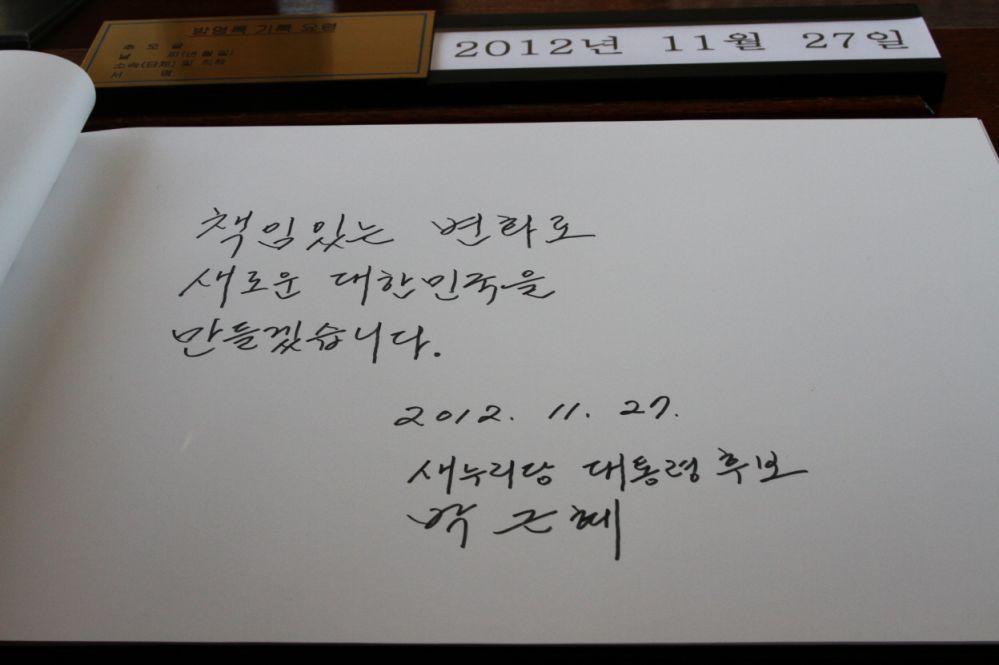 방명록 기록 요령
추 모 글
날 짜(년월일)
소속(단체) 및 직책
서 명
2012년 11월 27일
책임있는 변화로
새로운 대한민국을
만들겠습니다.
2012. 11. 27.
새누리당 대통령후보
박 근 혜